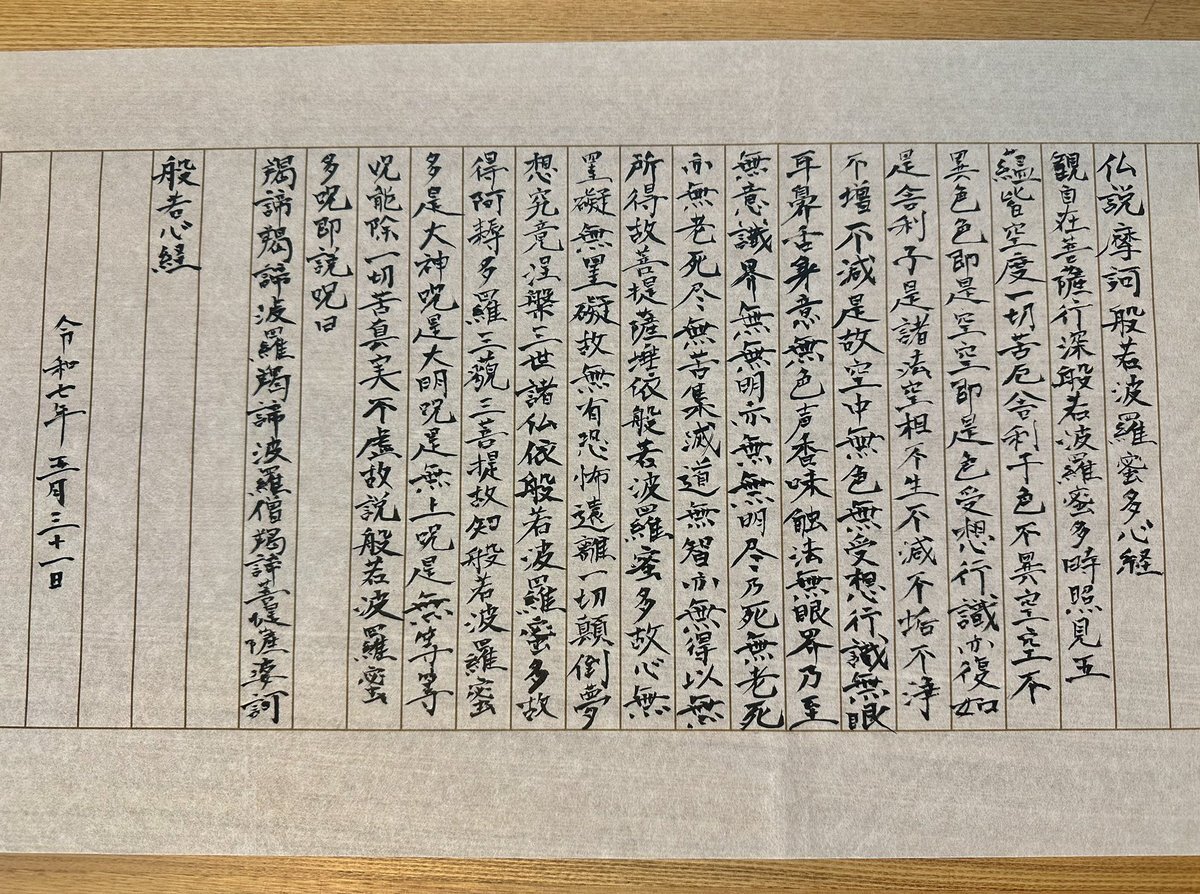 仏説摩訶般若波羅蜜多心経
観自在菩薩行深般若波羅蜜多時照見五
蘊皆空度一切苦厄舎利子色不異空空不
異色色即是空空即是色受想行識亦復如
是舎利子是諸法空相不生不減不垢不浄
不増不減是故空中無色無受想行識無眼
耳鼻舌身意無色声香味触法無眼界乃至
無意識界無無明亦無無明尽乃死無老死
亦無老死尽無苦集滅道無智亦無得以無
所得故菩提薩埵依般若波羅蜜多故心無
罣礙無罣礙故無有恐怖遠離一切顛倒夢
想究竟涅槃三世諸仏依般若波羅蜜多故
得阿耨多羅三藐三菩提故知般若波羅蜜
多是大神呪是大明呪是無上呪是無等等
呪能除一切苦真実不虚故説般若波羅蜜
多呪即説呪曰
羯諦羯諦波羅羯諦波羅僧羯諦菩提薩婆訶
般若心経
令和七年 五月三十一日